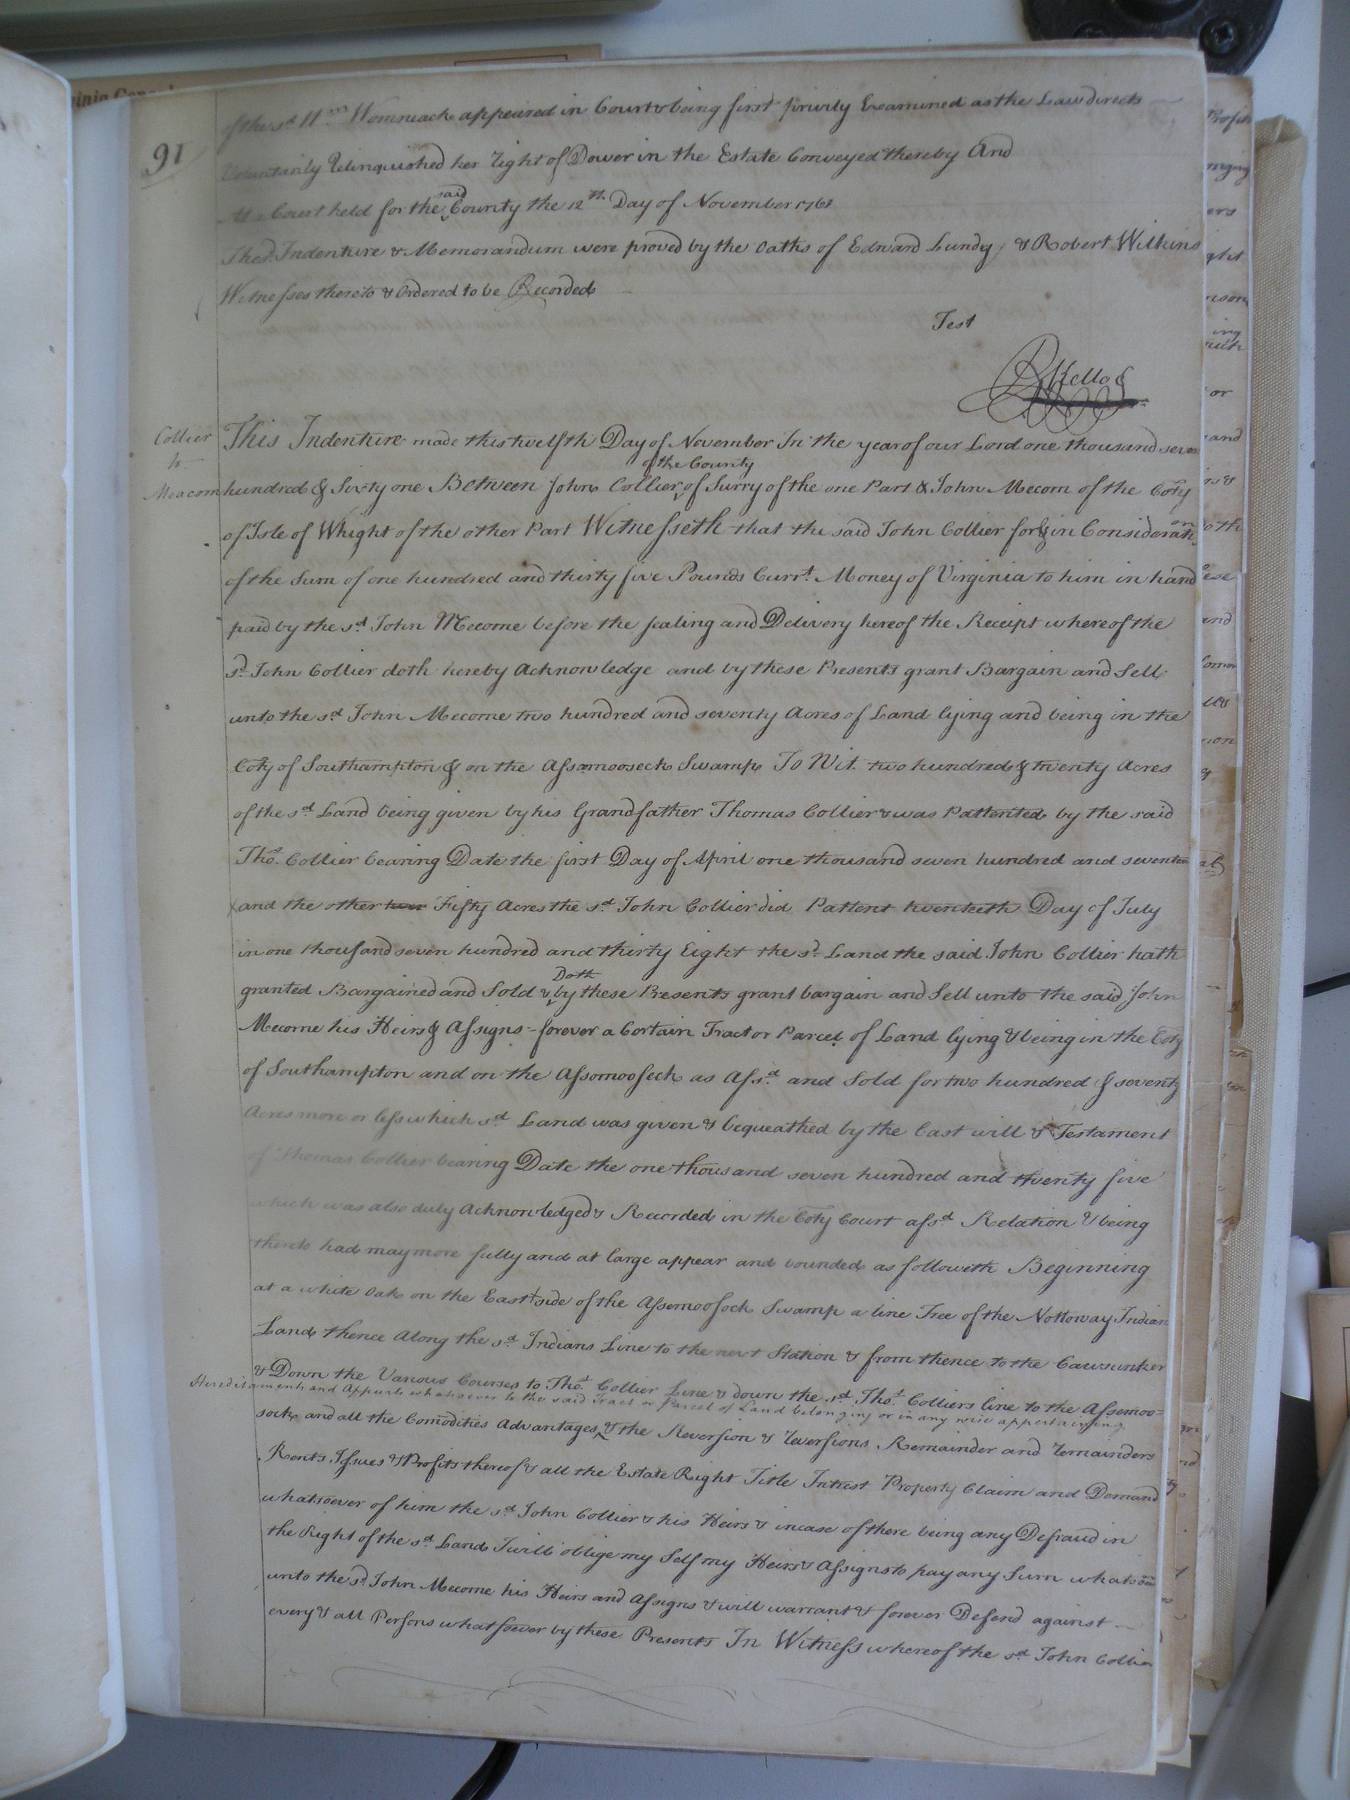 91
of the sd. Wm. Wommack appeared in Court & being first privily Examined as the Law directs
Voluntarily Relinquished her Right of Dower in the Estate Conveyed thereby And
At a Court held for the said County the 12th Day of November 1761
The sd. Indenture & Memorandum were proved by the Oaths of Edward Lundy, & Robert Wilkins
Witnesses thereto & Ordered to be Recorded
Test
R Kello
Collier
to
Meacom
This Indenture made this twelfth Day of November In the year of our Lord one thousand seven
hundred & Sixty one Between John Collier of the County of Surry of the one Part & John Mecom of the Coty
of Isle of Whight of the other Part Witnesseth that the said John Collier for & in Consideration
of the Sum of one hundred and thirty five Pounds Currt. Money of Virginia to him in hand
paid by the sd. John Mecome before the sealing and Delivery hereof the Receipt whereof the
sd. John Collier doth hereby Acknowledge and by these Presents grant Bargain and Sell
unto the sd. John Mecome two hundred and seventy Acres of Land lying and being in the
Coty of Southampton & on the Assamooseck Swamp To Wit. two hundred & twenty Acres
of the sd. Land being given by his Grandfather Thomas Collier & was Pattented by the said
Thos. Collier bearing Date the first Day of April one thousand seven hundred and seventeen
and the other Fifty Acres the sd. John Collier did Pattent twentieth Day of July
in one thousand seven hundred and thirty Eight the sd. Land the said John Collier hath
granted Bargained and Sold & Doth by these Presents grant bargain and Sell unto the said John
Mecome his Heirs & Assigns forever a Certain Tract or Parcel of Land lying & being in the Coty
of Southampton and on the Assomooseck as Afsd. and Sold for two hundred & seventy
Acres more or less which sd. Land was given & bequeathed by the Last will & Testament
of Thomas Collier bearing Date the one thousand seven hundred and twenty five
which was also duly Acknowledged & Recorded in the Coty Court afsd. Relation & being
thereto had may more fully and at large appear and bounded as followith Beginning
at a white Oak on the East side of the Assomoosock Swamp a line Tree of the Nottoway Indian
Land thence Along the sd. Indians Line to the next Station & from thence to the Cawsunker
& Down the Various Courses to Thos. Collier Line & down the sd. Thos. Colliers line to the Assomoo=
Hereditaments and Appurts whatsoever to the said Tract or Parcel of Land belonging or in any wise appertaining
sock and all the Comodities Advantages & the Reversion & Reversions Remainder and Remainders
Rents Issues & Profits thereof & all the Estate Right Title Intrest Property Claim and Demand
whatsoever of him the sd. John Collier & his Heirs & incase of there being any Defraud in
the Right of the sd. Land I will oblige my Self my Heirs & Assigns to pay any Sum whatsoever
unto the sd. John Mecome his Heirs and Assigns & will warrant & forever Defend against
every & all Persons whatsoever by these Presents In Witness whereof the sd. John Collier